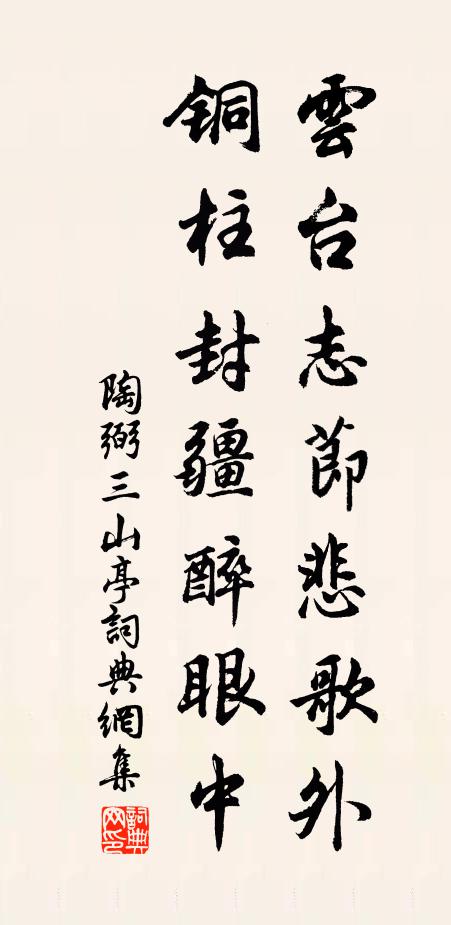 雲台志節悲歌外
銅柱封疆醉眼中
陶弼三山亭詞典網集
詞典網印